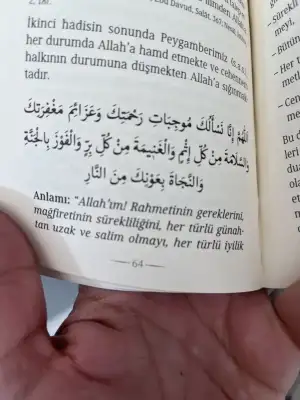 2, 18.
Ebu Davud, Salât, 367;
İkinci hadisin sonunda Peygamberimiz (s.a.s.),
her durumda Allah'a hamd etmekte ve cehennem
halkının durumuna düşmekten Allah'a sığınmak-
tadır.
اَللّٰهُمَّ اِنَّا نَسْأَلُكَ مُوجِبَاتِ رَحْمَتِكَ وَعَزَائِمَ مَغْفِرَتِكَ
وَالسَّلَامَةَ مِنْ كُلِّ اِثْمٍ وَالْغَنِيمَةَ مِنْ كُلِّ بِرٍّ وَالْفَوْزَ بِالْجَنَّةِ
وَالنَّجَاةَ بِعَوْنِكَ مِنَ النَّارِ
Anlamı: "Allah'ım! Rahmetinin gereklerini,
mağfiretinin sürekliliğini, her türlü günah-
tan uzak ve salim olmayı, her türlü iyilik
64
- Sürekli
meyi,
- Bütün
- Her t
mek
- Cen